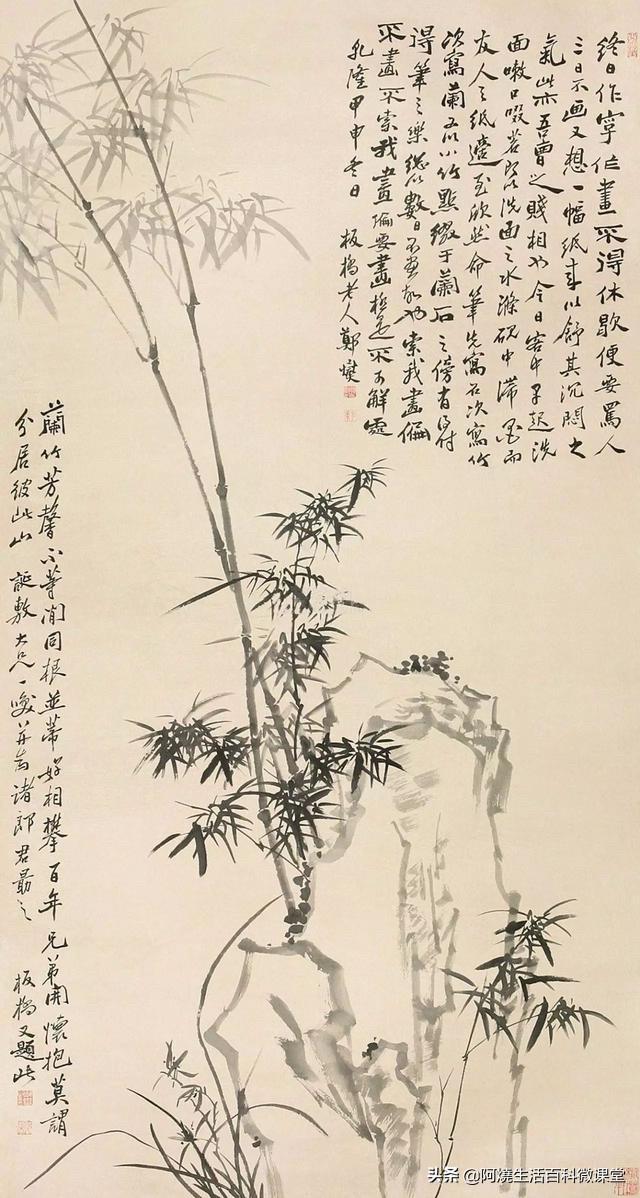 終日作字作畫不得休歇便要罵人
三日不画又想一幅紙來以舒其沉悶之
氣此亦吾曹之賤相也今日客中早起洗
面嗽口啜茗即以洗面之水滌硯中滯墨而
友人之紙適至欣然命筆先寫石次寫竹
次寫蘭又以小竹點綴于蘭石之傍有
得筆之樂總以數日不畫故也索我畫偏
不畫不索我畫偏要畫極是不可解處
乾隆甲申冬日 板橋老人鄭燮
蘭竹芳馨不等閒同根並蒂好相攀百年兄弟開懷抱莫謂
分居彼此山 誕敷大兄一 并為諸郎君勗之 板橋又題此
头条 @阿燒生活百科微课堂